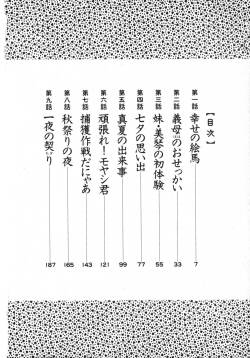 【目次】
第一話 幸せの絵馬 7
第二話 義母のおせっかい 33
第三話 妹・美琴の初体験 55
第四話 七夕の思い出 77
第五話 真夏の出来事 99
第六話 頑張れ！モヤシ君 121
第七話 捕獲作戦だにゃあ 143
第八話 秋祭りの夜 165
第九話 一夜の契り 187